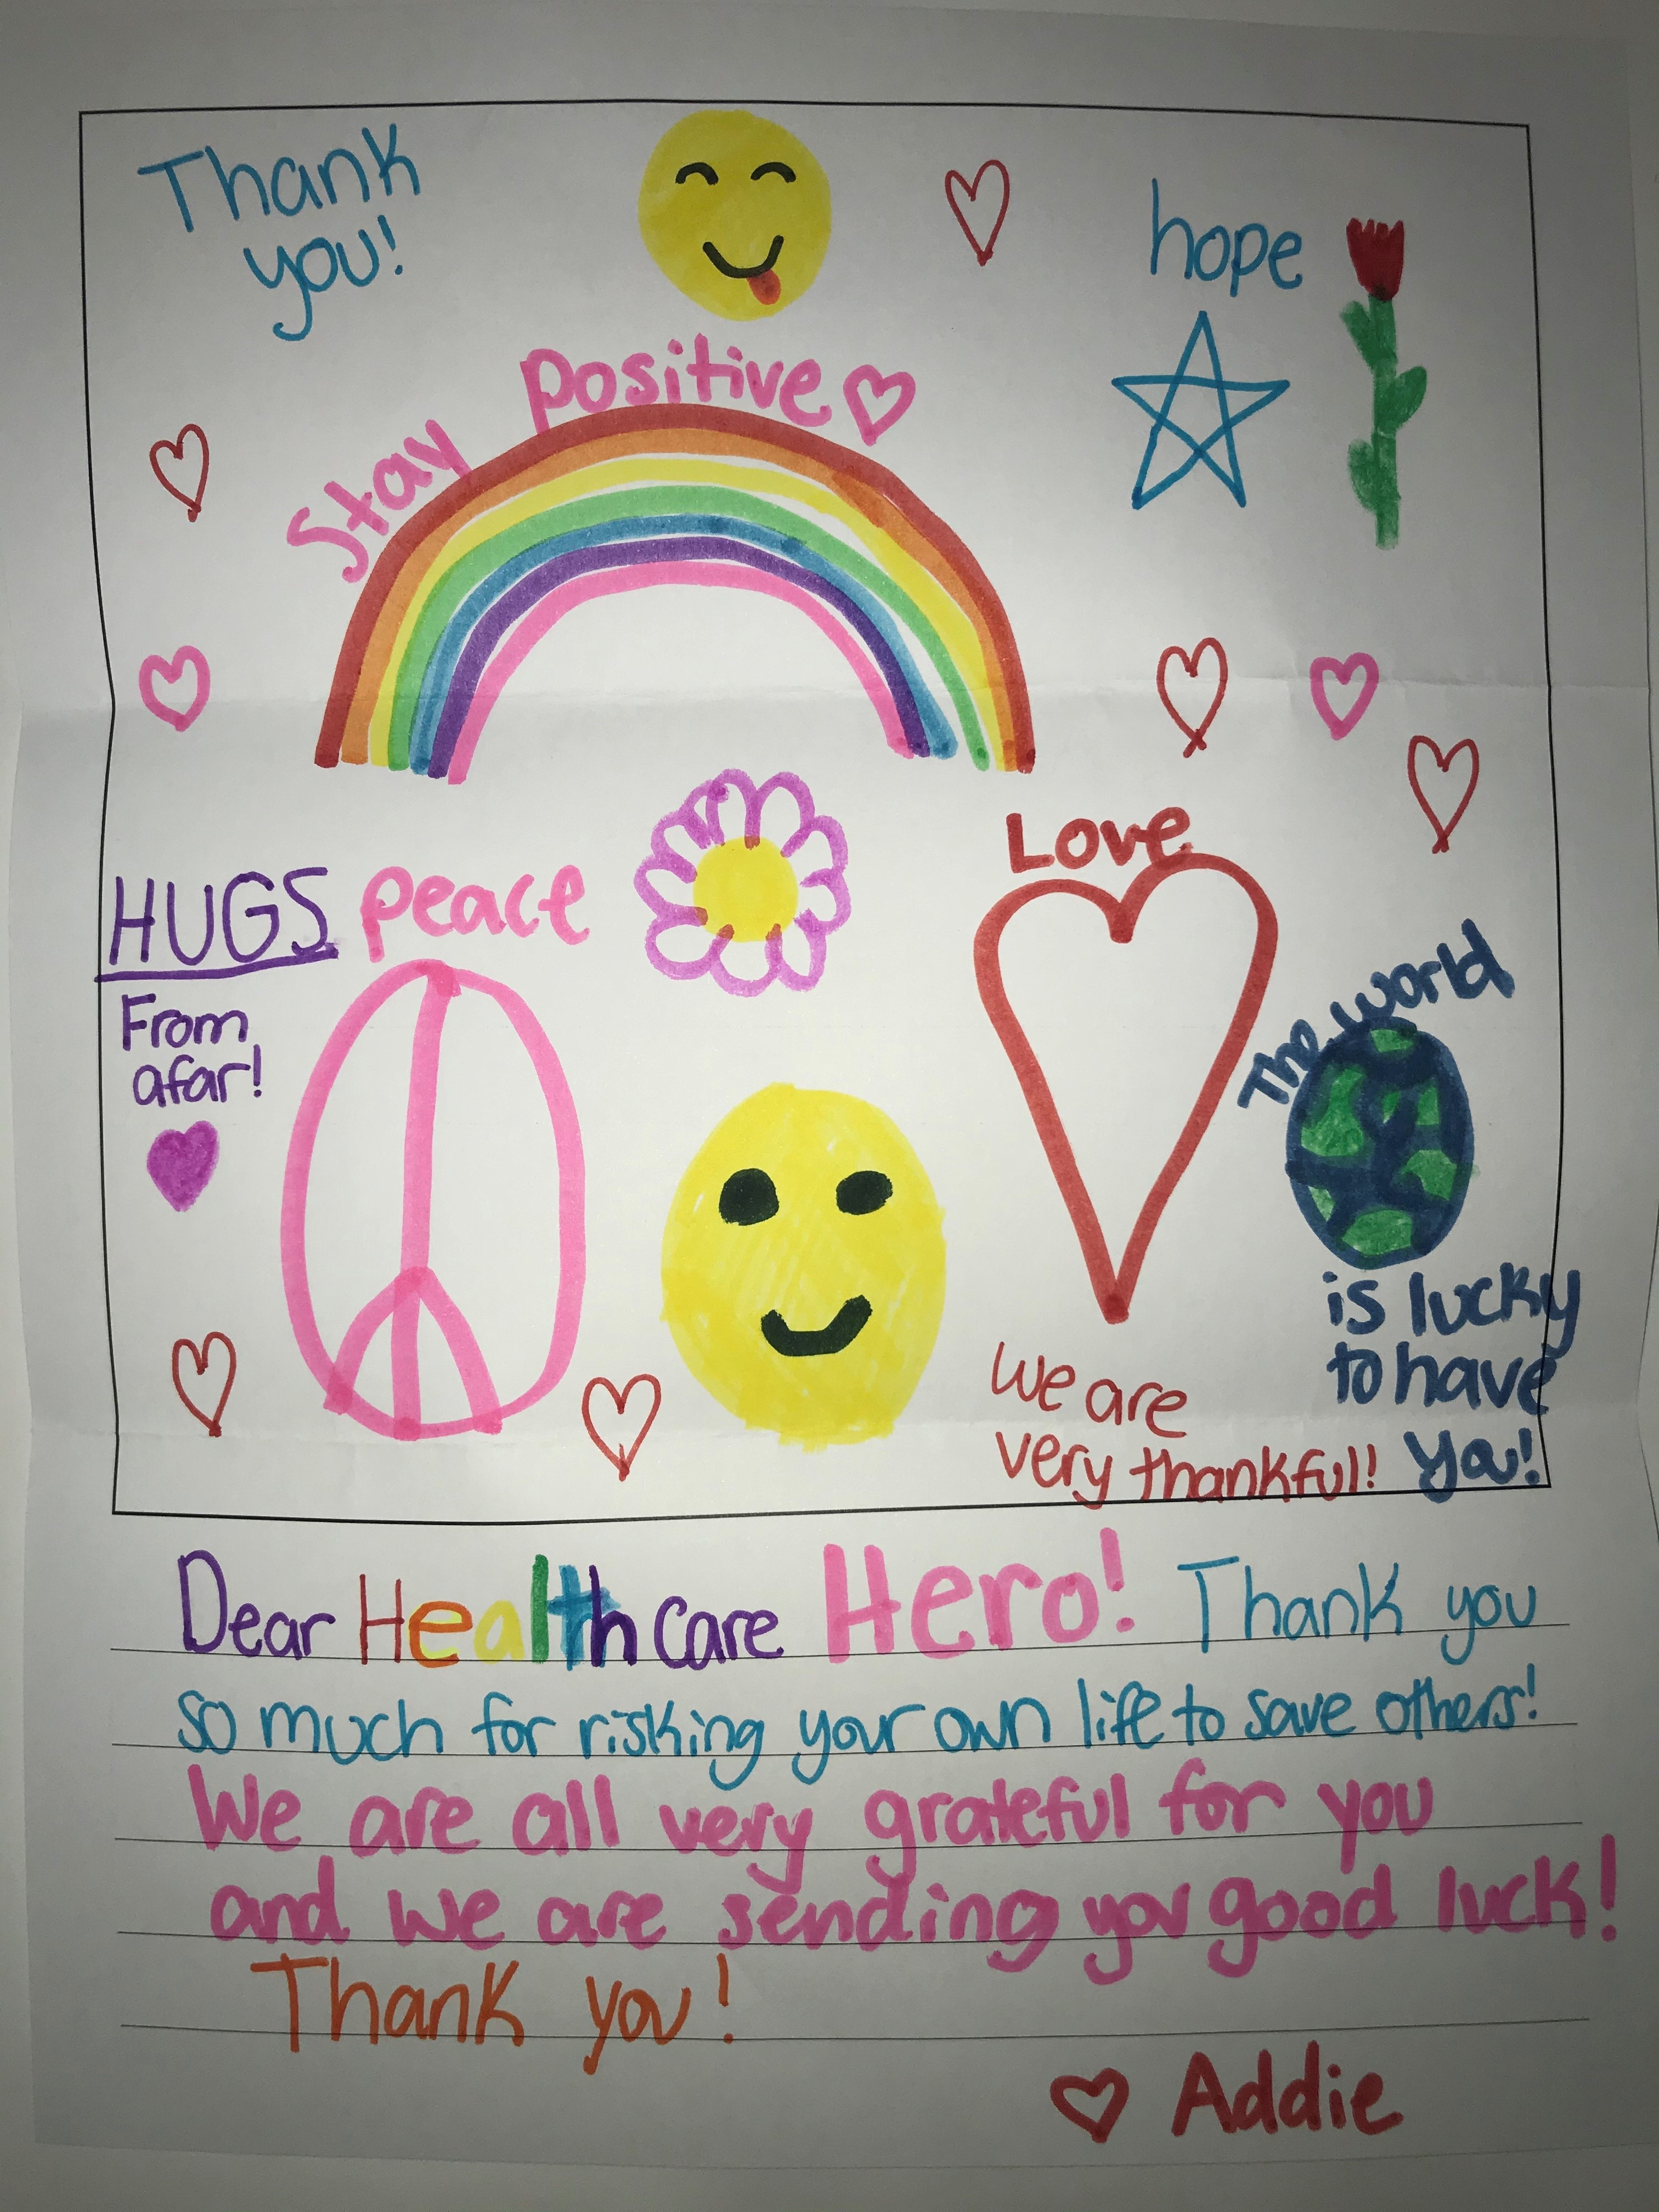 Thank
you!
hope
Stay positive
Love
HUGS peace
From
afar!
The world
is lucky
to have
you!
We are
very thankful!
Dear Health care Hero! Thank you
so much for risking your own life to save others!
We are all very grateful for you
and we are sending you good luck!
Thank you!
Addie